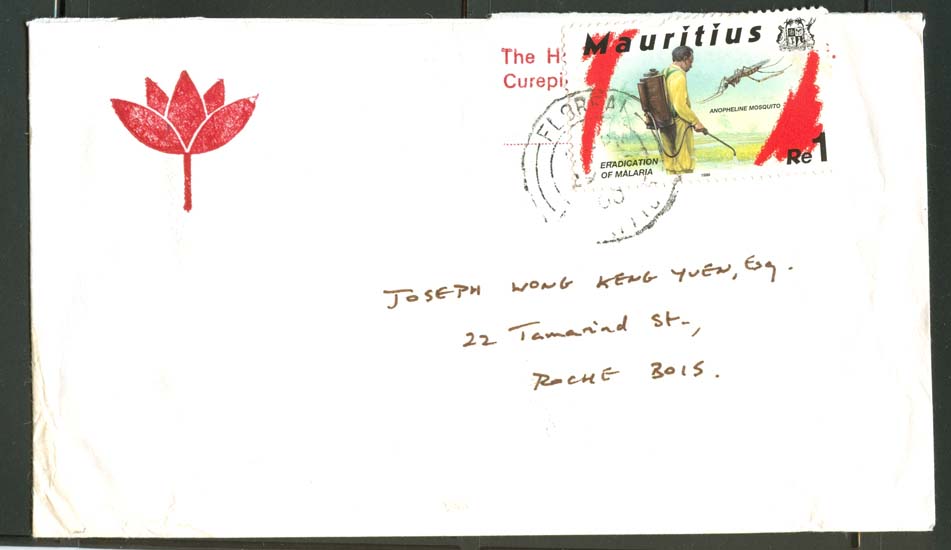 The H
Curepi
Mauritius
ANOPHELINE MOSQUITO
ERADICATION
OF MALARIA
Re1
FLOREAL
JOSEPH WONG KENG YUEN, Esq.
22 Tamarind St.,
ROCHE BOIS.